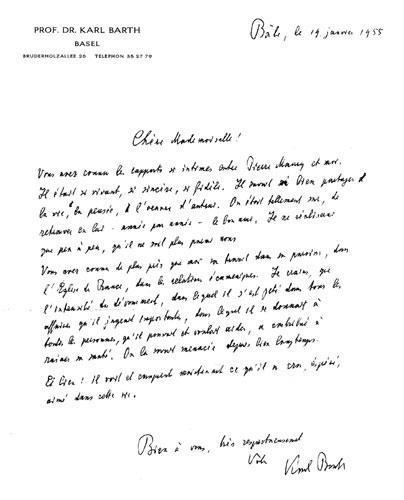 PROF. DR. KARL BARTH
BASEL
BRUDERHOLZALLEE 26 TELEPHON 35 27 79
Bâle, le 19 janvier 1955
Chère Mademoiselle!
Vous avez connu les rapports si intimes entre Pierre Maury et moi.
Il était si vivant, si sincère, si fidèle. Il savait si bien partager
la vie, la pensée, l'œuvre d'autrui. On était tellement sûr, de
retrouver en lui - année par année - le bon ami. Je ne réaliserai
que peu à peu, qu'il ne soit plus parmi nous
Vous avez connu de plus près que moi son travail dans sa paroisse, dans
l'Eglise de France, dans les relations œcuméniques. Je crains, que
l'intensité du dévouement, dans lequel il s'est jeté dans tous les
affaires qu'il jugeait importants, dans lequel il se donnait à
toutes les personnes, qu'il pouvait et voulait aider, a contribué à
ruiner sa santé. On la savait menacée depuis bien longtemps.
Eh bien! il voit et comprend maintenant ce qu'il a cru, espéré,
aimé dans cette vie.
Bien à vous, très respectueusement
Votre Karl Barth